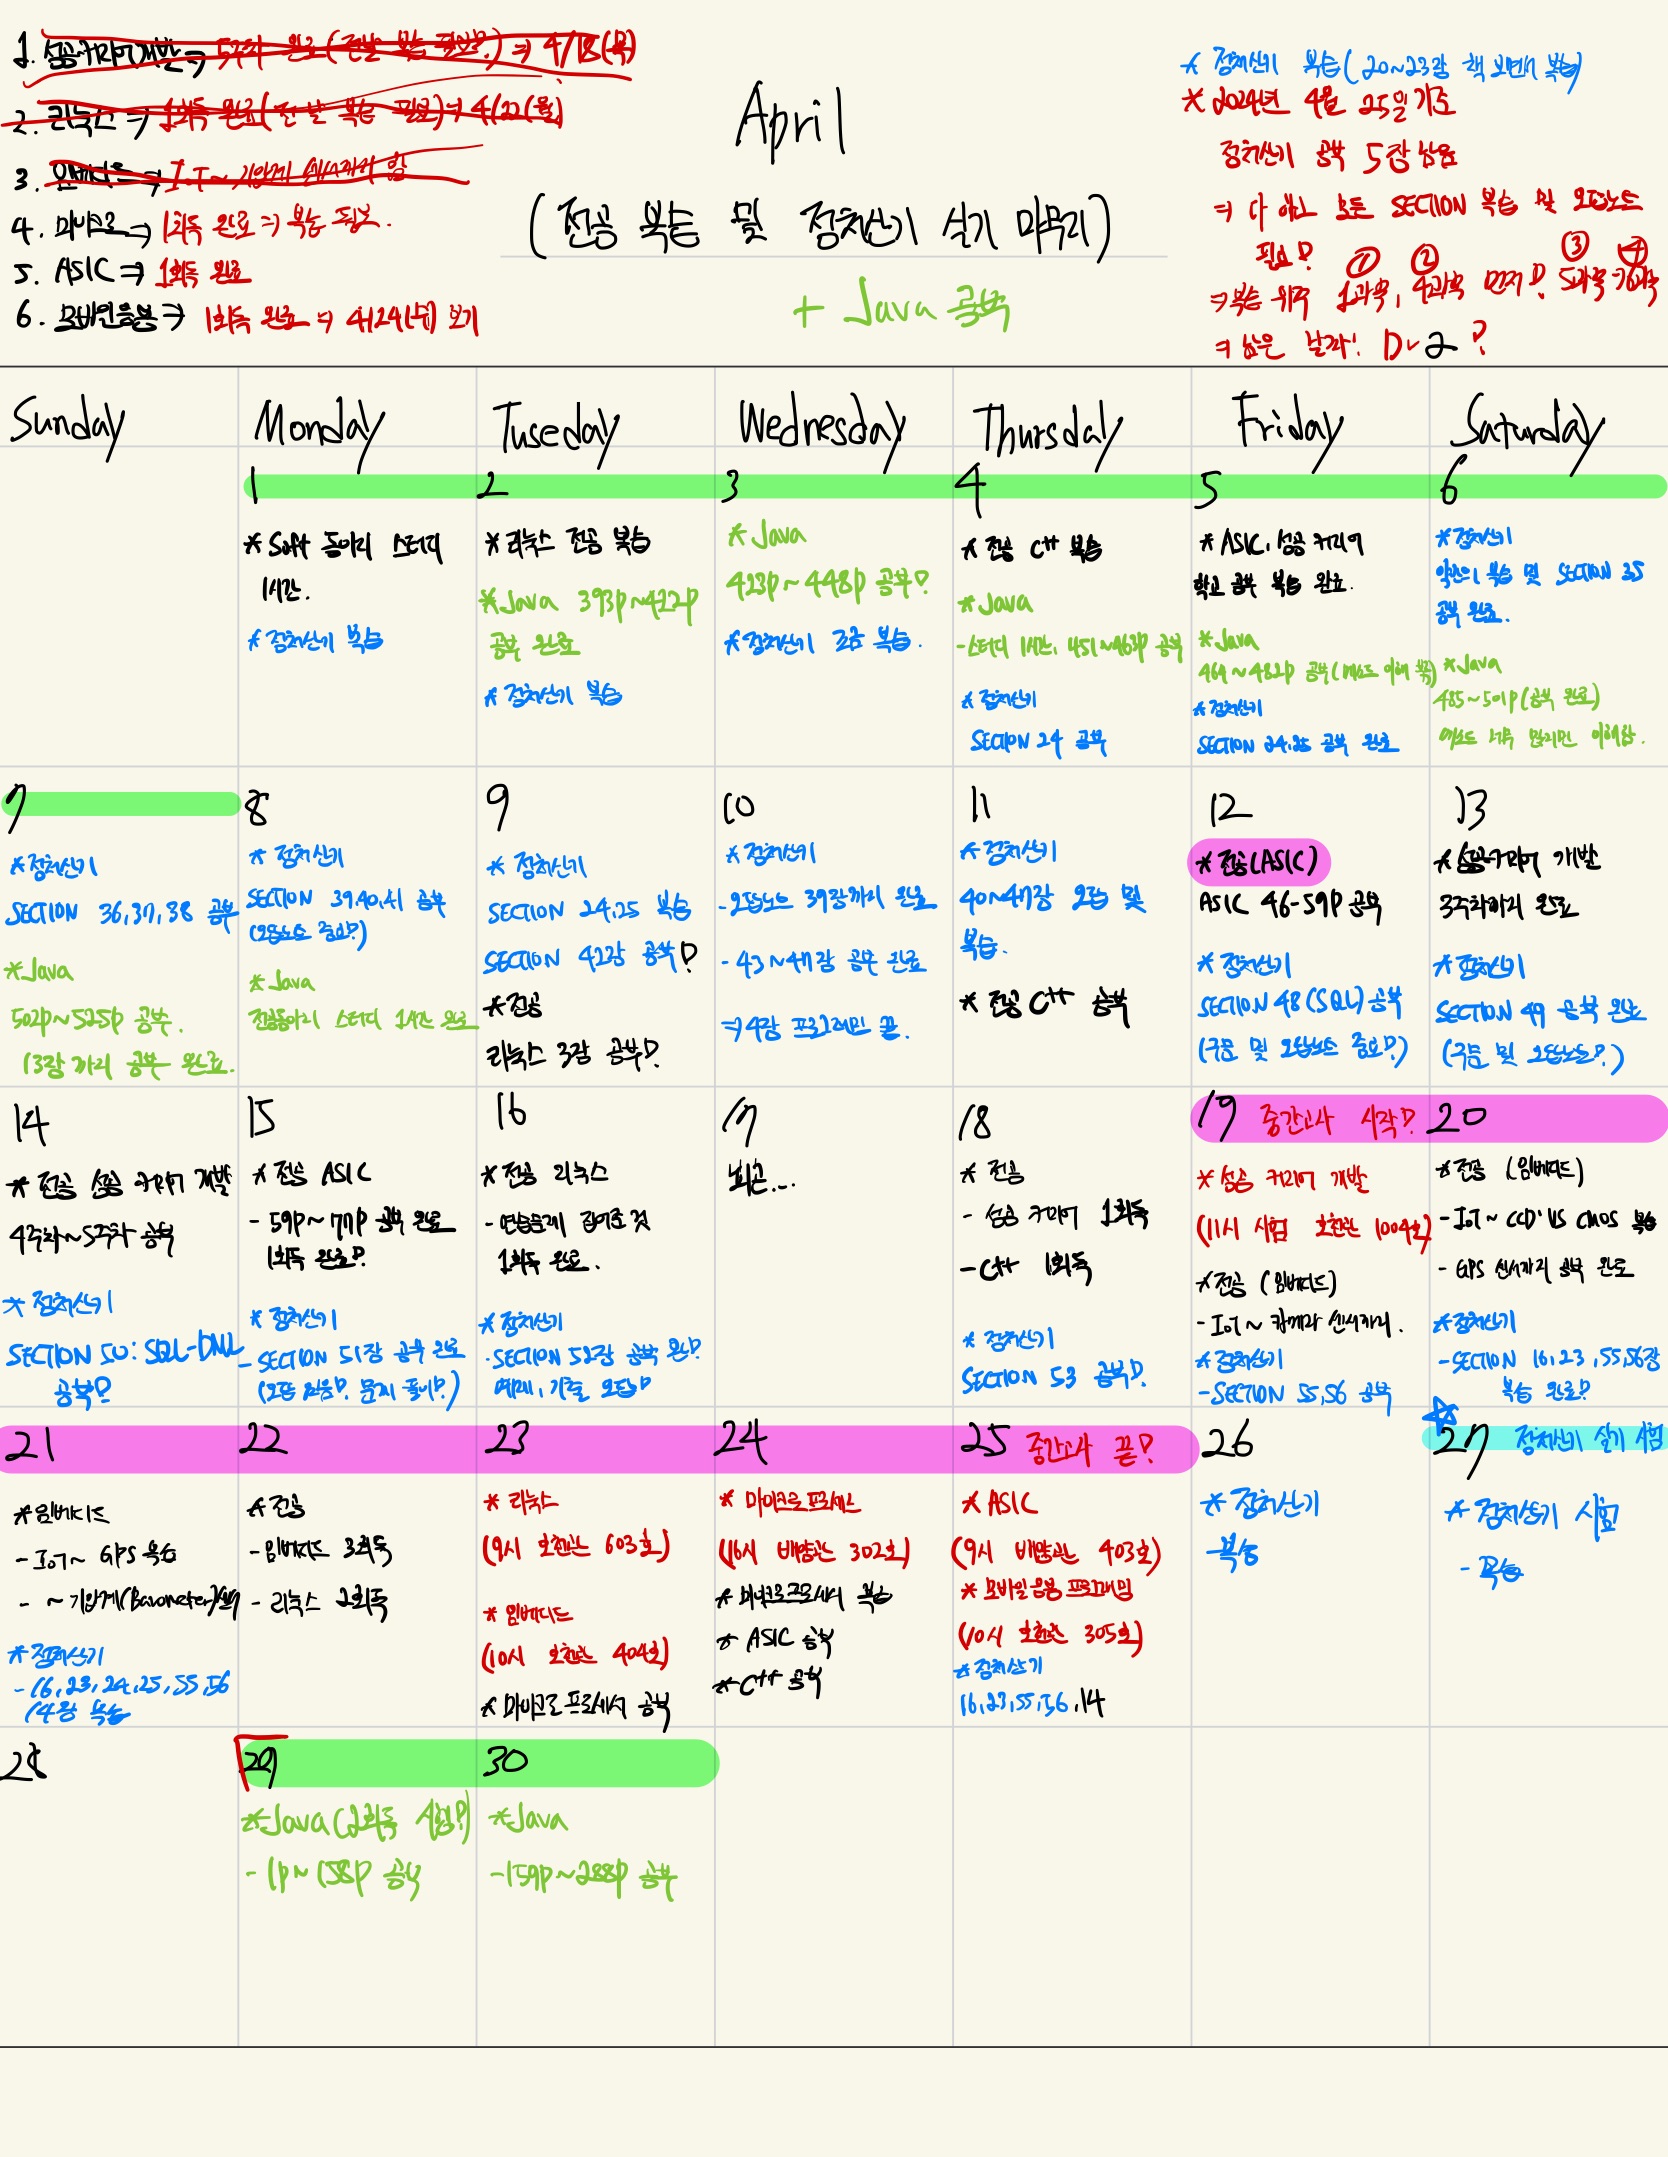 1. 성공커리어개발 ⇒ 5주차 완료 (전날 복습 필요?) ⇒ 4/18(목)
2. 리눅스 ⇒ 1회독 완료(전 날 복습 필요) ⇒ 4/22(월)
3. 임베디드 ⇒ IoT ~ 기압계 센서까지 함
4. 마이크로 ⇒ 1회독 완료 ⇒ 복습 필요.
5. ASIC ⇒ 1회독 완료
6. 모바일응용 ⇒ 1회독 완료 ⇒ 4/24(수) 보기
April
(전공 복습 및 정처산기 실기 마무리)
+ Java 공부
* 정처산기 복습(20~23장 책 보면서 복습)
* 2024년 4월 25일 기준
정처산기 공부 5장 남음
⇒ 다 하고 모든 SECTION 복습 및 오답노트
필요?
① ② ③ ④
⇒ 복습 위주 1과목, 4과목 먼저? 5과목
⇒ 남은 날짜! D-2?
Sunday
Monday
Tuseday
Wednesday
Thursday
Friday
Saturday
1
* Soft 동아리 스터디
1시간.
* 정처산기 복습
2
* 리눅스 전공 복습
* Java 393p~422p
공부 완료
* 정처산기 복습
3
* Java
423p~448p 공부?
* 정처산기 조금 복습.
4
* 전공 C++ 복습
* Java
- 스터디 1시간, 451~463p 공부
* 정처산기
SECTION 24 공부
5
* ASIC, 성공 커리어
학교 공부 복습 완료.
* Java
464~482p 공부(메소드 이해 쪽)
* 정처산기
SECTION 24,25 공부 완료
6
* 정처산기
약간의 복습 및 SECTION 35
공부 완료.
* Java
485~501p(공부 완료)
메소드 너무 많지만 이해함.
7
* 정처산기
SECTION 36,37,38 공부
* Java
502p~525p 공부.
13장 까지 공부 완료.
8
* 정처산기
SECTION 39,40,41 공부
(오답노트 중요?)
* Java
전공동아리 스터디 1시간 완료
9
* 정처산기
SECTION 24,25 복습
SECTION 42장 공부?
* 전공
리눅스 3장 공부?
10
* 정처산기
- 오답노트 39장까지 완료
- 43~47장 공부 완료
⇒ 4장 프로그래밍 끝.
11
* 정처산기
40~47장 오답 및
복습.
* 전공 C++ 공부
12
* 전공(ASIC)
ASIC 46-59p 공부
* 정처산기
SECTION 48(SQL) 공부
(구문 및 오답노트 중요?)
13
* 성공커리어 개발
3주차까지 완료
* 정처산기
SECTION 49 공부 완료
(구문 및 오답노트?)
14
* 전공 성공 커리어 개발
4주차~5주차 공부
* 정처산기
SECTION 50: SQL-DML
공부?
15
* 전공 ASIC
- 59p~77p 공부 완료
1회독 완료?
* 정처산기
- SECTION 51장 공부 완료
(오답 있음?. 문제 풀이?.)
16
* 전공 리눅스
- 연습문제 집어준 것
1회독 완료.
* 정처산기
- SECTION 52장 공부 완?
예제, 기출 오답?
17
피곤...
18
* 전공
- 성공 커리어 1회독
- C++ 1회독
* 정처산기
SECTION 53 공부?
19 중간고사 시작?
* 성공 커리어 개발
(11시 시험 호천관 1004호)
* 전공 (임베디드)
- IoT ~ 카메라 센서까지.
* 정처산기
- SECTION 55,56 공부
20
* 전공 (임베디드)
- IoT ~ CCD VS CMOS 복습
- GPS 센서까지 공부 완료
* 정처산기
- SECTION 16,23,55,56장
복습 완료?
21
* 임베디드
- IoT ~ GPS 복습
- ~ 기압계(Barometer)
* 정처산기
- 16,23,24,25,55,56
14장 복습
22
* 전공
- 임베디드 3회독
- 리눅스 2회독
23
* 리눅스
(9시 호천관 603호)
* 임베디드
(10시 호천관 404호)
* 마이크로 프로세서 공부
24
* 마이크로프로세스
(16시 배양관 302호)
* 마이크로프로세서 복습
* ASIC 공부
* C++ 공부
25 중간고사 끝?
* ASIC
(9시 배양관 403호)
* 모바일응용 프로그래밍
(10시 호천관 305호)
* 정처산기
16,23,55,56,14
26
* 정처산기
복습
27 정처산기 실기 시험
* 정처산기 시험
- 복습
28
29
* Java(2회독 시작?)
- 1p~158p 공부
30
* Java
- 159p~288p 공부